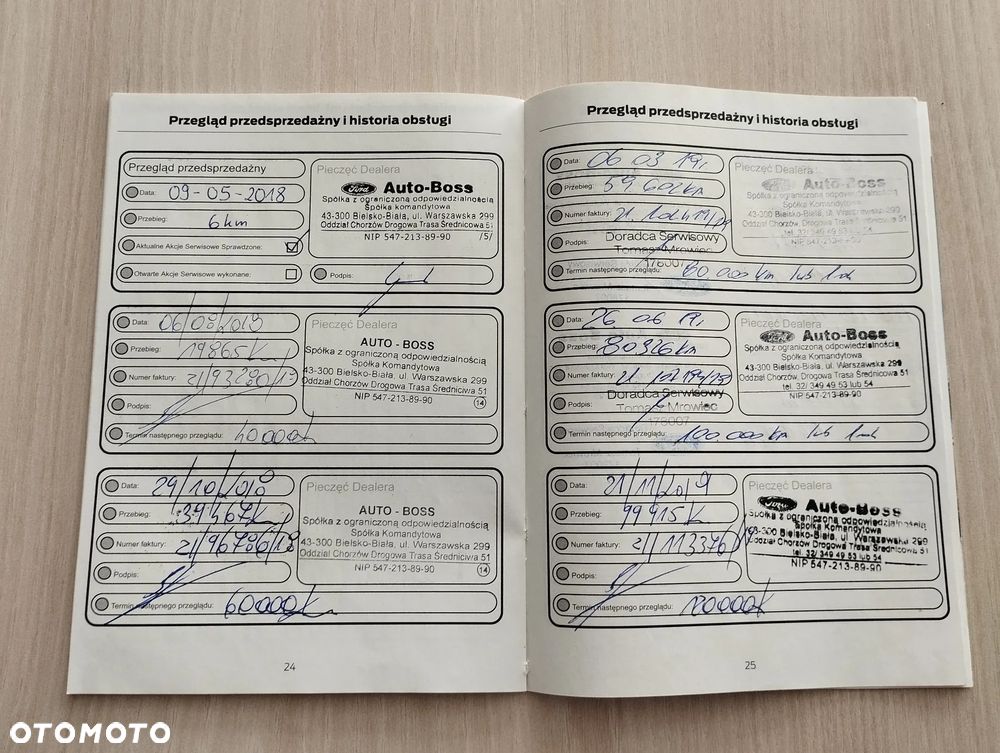 Przegląd przedsprzedażny i historia obsługi
Przegląd przedsprzedażny
Data: 09-05-2018
Przebieg: 6 km
Aktualne Akcje Serwisowe Sprawdzone:
Otwarte Akcje Serwisowe wykonane:
Pieczęć Dealera
Ford Auto-Boss
Spółka z ograniczoną odpowiedzialnością
Spółka komandytowa
43-300 Bielsko-Biała, ul. Warszawska 299
Oddział Chorzów Drogowa Trasa Średnicowa 51
NIP 547-213-89-90 /5/
Podpis:
Data: 06/08/2018
Przebieg: 19865 km
Numer faktury:
Podpis:
Termin następnego przeglądu: 40000
Pieczęć Dealera
AUTO - BOSS
Spółka z ograniczoną odpowiedzialnością
Spółka Komandytowa
43-300 Bielsko-Biała, ul. Warszawska 299
Oddział Chorzów Drogowa Trasa Średnicowa 51
NIP 547-213-89-90 14
Data: 29/10/2018
Przebieg: 39467 km
Numer faktury:
Podpis:
Termin następnego przeglądu: 60000
Pieczęć Dealera
AUTO - BOSS
Spółka z ograniczoną odpowiedzialnością
Spółka Komandytowa
43-300 Bielsko-Biała, ul. Warszawska 299
Oddział Chorzów Drogowa Trasa Średnicowa 51
NIP 547-213-89-90 14
24
Przegląd przedsprzedażny i historia obsługi
Data: 06 03 19r
Przebieg: 59 602 km
Numer faktury:
Podpis: Doradca Serwisowy
Tomasz Mrowiec
178007
Termin następnego przeglądu: 80 000 km lub 1 rok
Pieczęć Dealera
Ford Auto-Boss
Spółka z ograniczoną odpowiedzialnością
Spółka Komandytowa
43-300 Bielsko-Biała, ul. Warszawska 299
Oddział Chorzów Drogowa Trasa Średnicowa 51
tel. 32/ 349 49 53 lub 54
NIP 547-213-89-90
Data: 26 06 19r
Przebieg: 80326 km
Numer faktury:
Podpis: Doradca Serwisowy
Tomasz Mrowiec
178007
Termin następnego przeglądu: 100 000 km lub 1 rok
Pieczęć Dealera
Ford Auto-Boss
Spółka z ograniczoną odpowiedzialnością
Spółka Komandytowa
43-300 Bielsko-Biała, ul. Warszawska 299
Oddział Chorzów Drogowa Trasa Średnicowa 51
tel. 32/ 349 49 53 lub 54
NIP 547-213-89-90
Data: 21/11/2019
Przebieg: 99915 k
Numer faktury: 21/113376/19
Podpis:
Termin następnego przeglądu: 120000k
Pieczęć Dealera
Ford Auto-Boss
Spółka z ograniczoną odpowiedzialnością
Spółka Komandytowa
43-300 Bielsko-Biała, ul. Warszawska 299
Oddział Chorzów Drogowa Trasa Średnicowa 51
tel. 32/ 349 49 53 lub 54
NIP 547-213-89-90
25
OTOMOTO